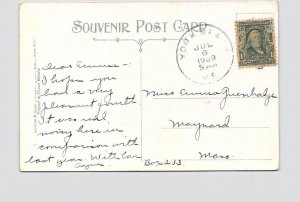 SOUVENIR POST CARD
YORK
JUL
6
1909
5 PM
Dear Emma -
I hope you
had a very
pleasant fourth
It was real
noisy here in
comparison with
last year. With love
Agnes
Miss Emma Greenhalge
Maynard
Box 233. Mass.